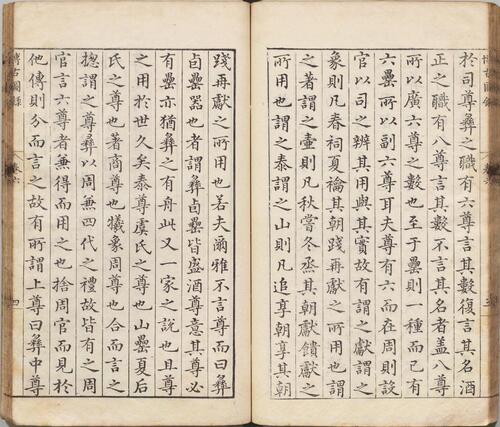 博古圖錄
卷六
三
於司尊彝之職有六尊言其數復言其名酒
正之職有八尊言其數不言其名者蓋八尊
所以廣六尊之數也至于罍則一種而已有
六罍所以副六尊耳夫尊有六而在周則設
官以司之辨其用與其實故有謂之獻謂之
象則凡春祠夏禴其朝踐再獻之所用也謂
之著謂之壷則凡秋嘗冬烝其朝獻饋獻之
所用也謂之泰謂之山則凡追享朝享其朝
踐再獻之所用也若夫爾雅不言尊而曰彝
卣罍器也者謂彝卣罍皆盛酒尊意其尊必
有罍亦猶彝之有舟此又一家之說也且尊
之用於世久矣泰尊虞氏之尊也山罍夏后
氏之尊也著商尊也犧象周尊也合而言之
揔謂之尊彝以周兼四代之禮故皆有之周
官言六尊者兼得而用之也捨周官而見於
他傳則分而言之故有所謂上尊曰彝中尊
博古圖錄
卷六
四